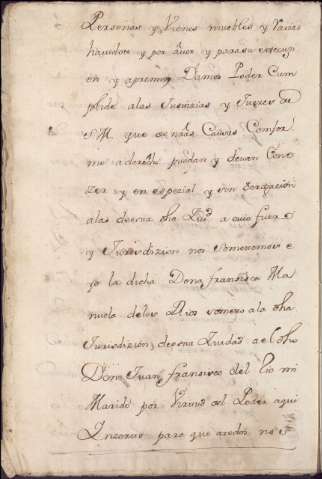 Personas y Vienes muebles y Raizes
havidos y por aver y para su execuçi
on y apremio Damos Poder Cum
plido a las Justicias y Juezes de
S.M. que de nras Causas Comfor
me a derecho puedan y devan Cono
zer y en especial y con
a las desta dha Ziud a cuio fuero
y Jurisdizion nos sometemos e
yo la dicha Dona francisca Ma
nuela de los Rios someto a la dha
Jurisdizion desta Ziudad a el dho
Don Juan francisco del Rio mi
Marido por Virtud del Poder aqui
Inserto para que a nos